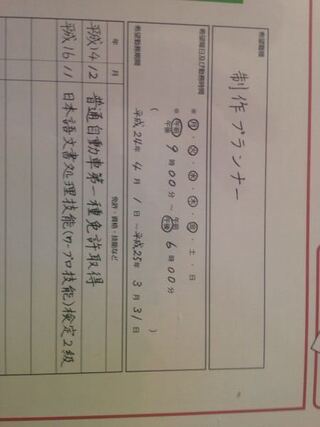 希望職種
制作プランナー
希望曜日及び勤務時間
※ 月・火・水・木・金・土・日
※ 午前 午後 9時00分～ 午前 午後 6時00分
( 平成24年4月1日～平成25年3月31日 )
年 月 免許・資格・技能など
平成14 12 普通自動車第一種免許取得
平成16 11 日本語文書処理技能(ワープロ技能)検定2級